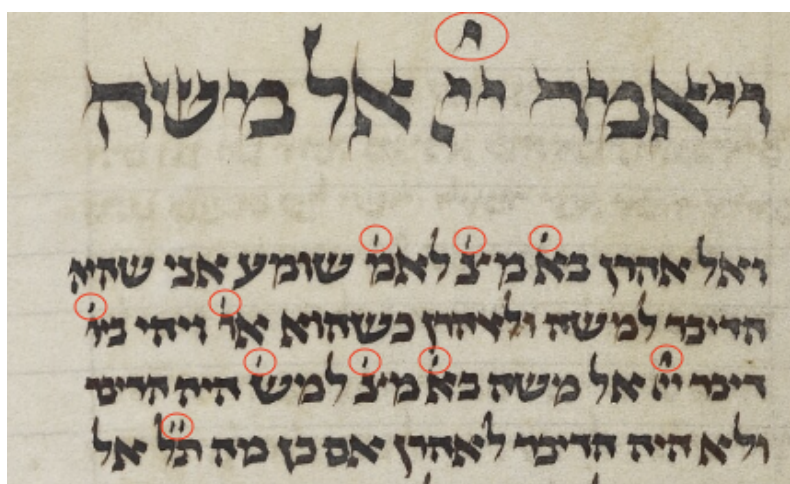 ויאמר יי׳ אל משה
ואל אהרן בא׳ מיצ׳ לאמ׳ שומע אני שהיה
הדיבר למשה ולאהרן כשהוא או׳ ויהי ביו׳
דיבר יי׳ אל משה בא׳ מיצ׳ למש׳ היה הדיבר
ולא היה הדיבר לאהרן אם כן מה תל״ אל